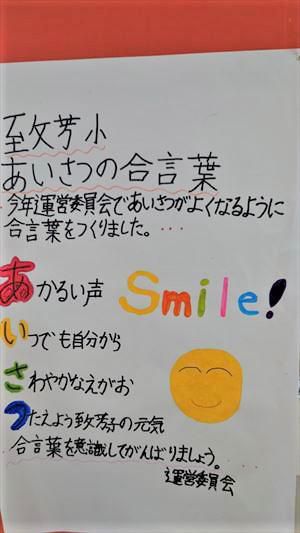 致芳小
あいさつの合言葉
今年運営委員会であいさつがよくなるように
合言葉をつくりました。・・・
あかるい声
Smile!
いつでも自分から
さわやかなえがお
つたえよう致芳子の元気
合言葉を意識してがんばりましょう。・・・
運営委員会